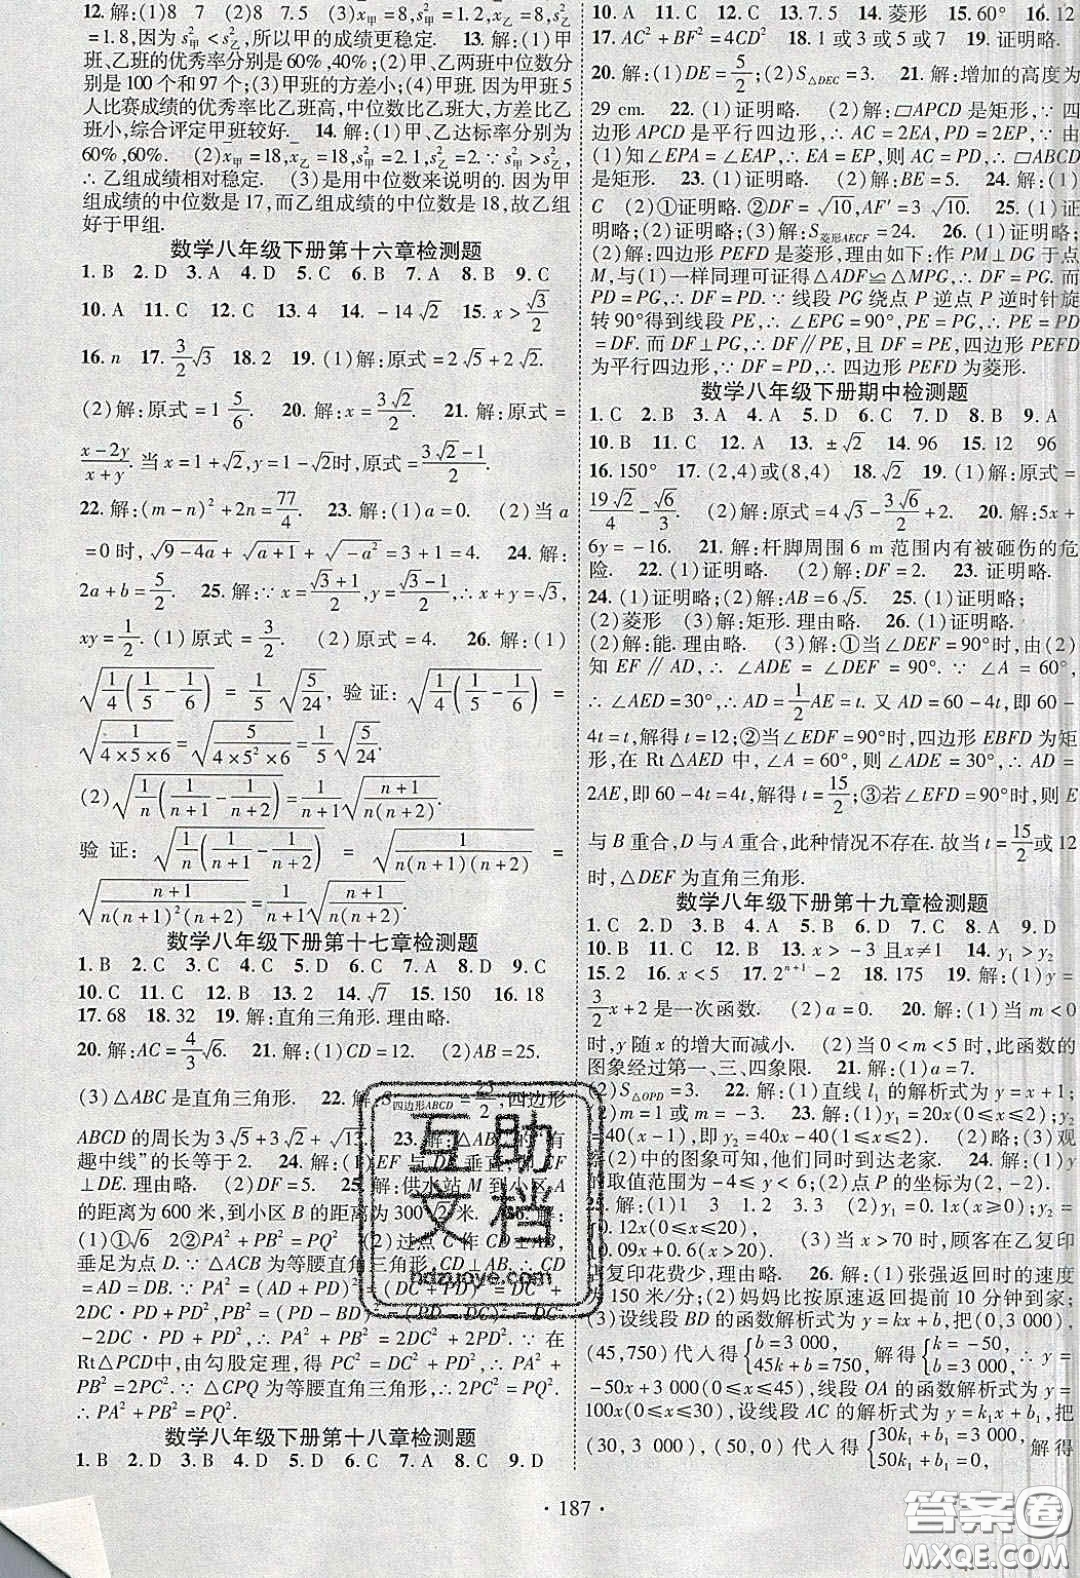 12. 解:(1)8 7 (2)8 7.5 (3)x̄甲=8,s²甲=1.2,x̄乙=8,s²乙
=1.8,因为 s²甲<s²乙,所以甲的成绩更稳定. 13. 解:(1)甲
班、乙班的优秀率分别是60%,40%;(2)甲、乙两班中位数分
别是100个和97个;(3)甲班的方差小;(4)甲班5
人比赛成绩的优秀率比乙班高,中位数比乙班大,方差比乙
班小,综合评定甲班较好. 14. 解:(1)甲、乙达标率分别为
60%,60%. (2)x̄甲=18,x̄乙=18,s²甲=2.1,s²乙=2.∵s²甲>s²乙,
∴乙组成绩相对稳定. (3)是用中位数来说明的. 因为甲
组成绩的中位数是17,而乙组成绩的中位数是18,故乙组
好于甲组.
数学八年级下册第十六章检测题
1. B 2. D 3. A 4. D 5. C 6. B 7. A 8. B 9. C
10. A 11. C 12. C 13. 4 14. -14√2 15. x>√3/2
16. n 17. 3/2√3 18. 2 19. (1)解:原式=2√5+2√2.
(2)解:原式=1 5/6. 20. 解:x=3√2/2. 21. 解:原式=
(x-2y)/(x+y). 当 x=1+√2,y=1-√2时,原式=(3√2-1)/2.
22. 解:(m-n)²+2n=77/4. 23. 解:(1)a=0. (2)当 a
=0时,√(9-4a)+√(a+1)+√(-a²)=3+1=4. 24. 解:
2a+b=5/2. 25. 解:∵x=(√3+1)/2,y=(√3-1)/2,∴x+y=√3,
xy=1/2. (1)原式=3/2. (2)原式=4. 26. 解:(1)
√(1/4(1/5-1/6)) = 1/5√(5/24), 验证:√(1/4(1/5-1/6)) =
√(1/(4×5×6))=√(5/(4×5²×6))=1/5√(5/24).
(2)√(1/n(1/(n+1)-1/(n+2)))=1/(n+1)√((n+1)/(n(n+2))).
验证:√(1/n(1/(n+1)-1/(n+2))) = √(1/(n(n+1)(n+2))) =
√((n+1)/(n(n+1)²(n+2)))=1/(n+1)√((n+1)/(n(n+2))).
数学八年级下册第十七章检测题
1. B 2. C 3. C 4. C 5. D 6. C 7. A 8. D 9. C
10. C 11. C 12. B 13. 2 14. √7 15. 150 16. 18
17. 68 18. 32 19. 解:直角三角形. 理由略.
20. 解:AC=4/3√6. 21. 解:(1)CD=12. (2)AB=25.
(3)△ABC是直角三角形. 22. 解:S四边形ABCD=/2;四边形
ABCD的周长为3√5+3√2+√. 23. 解:△AB的“有
趣中线”的长等于2. 24. 解:(1)EF与DE垂直,即EF
⊥DE. 理由略. (2)DF=5. 25. 解:供水站M到小区A
的距离为600米,到小区B的距离为300√2米. 26. 解:
(1)①√6 2②PA²+PB²=PQ² (2)过点C作CD⊥AB,
垂足为点D. ∵△ACB为等腰直角三角形,CD⊥AB. ∴CD
=AD=DB. ∵PA²=(AD+PD)²=(DC+PD)²=DC²+
2DC·PD+PD²,PB²=(PD-BD)²=(PD-DC)²=DC²
-2DC·PD+PD²,∴PA²+PB²=2DC²+2PD². ∵在
Rt△PCD中,由勾股定理,得PC²=DC²+PD²,∴PA²+
PB²=2PC². ∵△CPQ为等腰直角三角形,∴2PC²=PQ².
∴PA²+PB²=PQ².
数学八年级下册第十八章检测题
1. B 2. D 3. B 4. A 5. D 6. B 7. C 8. C 9. D
10. A 11. C 12. C 13. 7 14. 菱形 15. 60° 16. 12
17. AC²+BF²=4CD² 18. 1或3或5或7 19. 证明略.
20. 解:(1)DE=5/2;(2)S△DEC=3. 21. 解:增加的高度为
29 cm. 22. (1)证明略. (2)解:▱APCD是矩形,∵四
边形APCD是平行四边形,∴AC=2EA,PD=2EP,∵由
(1)知∠EPA=∠EAP,∴EA=EP,则AC=PD,∴▱ABCD
是矩形. 23. (1)证明略. (2)解:BE=5. 24. 解:(1)
C (2)①证明略. ②DF=√10,AF'=3√10. 25. (1)
证明略. (2)解:S菱形AECF=24. 26. (1)证明略.
(2)解:四边形PEFD是菱形,理由如下:作PM⊥DG于点
M,与(1)一样同理可证得△ADF≌△MPG,∴DF=PG,∵
PD=PG,∴DF=PD. ∵线段PG绕点P逆点P逆时针旋
转90°得到线段PE,∴∠EPG=90°,PE=PG,∴PE=PD
=DF. 而DF⊥PG,∴DF∥PE,且DF=PE,∴四边形PEFD
为平行四边形,∵DF=PD,∴四边形PEFD为菱形.
数学八年级下册期中检测题
1. C 2. B 3. A 4. A 5. D 6. C 7. D 8. B 9. A
10. B 11. C 12. A 13. ±√2 14. 96 15. 12 96
16. 150° 17. (2,4)或(8,4) 18. √2 19. (1)解:原式=
19√2/4-√6/3. (2)解:原式=4√3-3√6/2+2. 20. 解:5x+
6y=-16. 21. 解:杆脚周围6 m范围内有被砸伤的危
险. 22. (1)证明略. (2)解:DF=2. 23. 证明略.
24. (1)证明略;(2)解:AB=6√5. 25. (1)证明略;
(2)菱形 (3)解:矩形. 理由略. 26. (1)证明略.
(2)解:能. 理由略. (3)解:①当∠DEF=90°时,由(2)
知EF∥AD,∴∠ADE=∠DEF=90°. ∵∠A=60°,
∴∠AED=30°,∴AD=1/2AE=t. 又AD=60-4t,即60-
4t=t,解得t=12;②当∠EDF=90°时,四边形EBFD为矩
形,在Rt△AED中,∠A=60°,则∠ADE=30°,∴AD=
2AE,即60-4t=4t,解得t=15/2;③若∠EFD=90°时,则E
与B重合,D与A重合,此种情况不存在. 故当t=15/2或12
时,△DEF为直角三角形.
数学八年级下册第十九章检测题
1. C 2. D 3. D 4. A 5. B 6. D 7. C 8. A 9. D
10. B 11. C 12. B 13. x>-3且x≠1 14. y₁>y₂
15. 2 16. x<5 17. 2ⁿ⁺¹-2 18. 175 19. 解:(1)y=
3/2x+2是一次函数. (2)a=0. 20. 解:(1)当m<0
时,y随x的增大而减小. (2)当0<m<5时,此函数的
图象经过第一、三、四象限. 21. 解:(1)a=7.
(2)S△OPD=3. 22. 解:(1)直线l₁的解析式为y=x+1;
(2)m=1 23. 解:(1)y₁=20x(0≤x≤2);y₂
=40(x-1),即y₂=40x-40(1≤x≤2). (2)略;(3)观
察(2)中的图象可知,他们同时到达老家. 24. 解:(1)y
的取值范围是-4≤y<6;(2)点P的坐标为(2,-2).
25. 解:(1)1 2 1.2 3.3 (2)y₁=0.1x(x≥0);y₂=
0.12x(0≤x≤20), (3)当x>70时,顾客在乙复印
0.09x+0.6(x>20).
店复印花费少,理由略. 26. 解:(1)张强返回时的速度
为150米/分;(2)妈妈比按原速返回提前10分钟到家;
(3)设线段BD的函数解析式为y=kx+b,把(0,3 000),
(45,750)代入得{b=3 000, 45k+b=750, 解得{k=-50, b=3 000, ∴y=
-50x+3 000(0≤x≤45),线段OA的函数解析式为y=
100x(0≤x≤30),设线段AC的解析式为y=k₁x+b₁,把
(30,3 000),(50,0)代入得{30k₁+b₁=3 000, 50k₁+b₁=0, 解得
· 187 ·
互助
文档
hdzuoye.com
答案圈
MXQE.COM